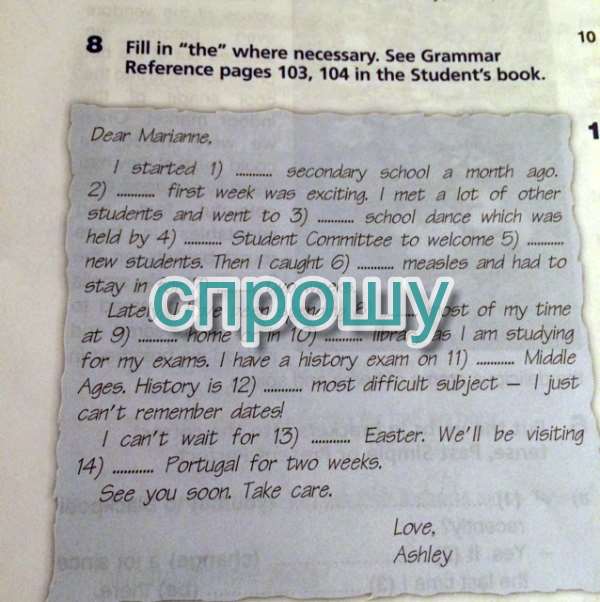 8 Fill in "the" where necessary. See Grammar
Reference pages 103, 104 in the Student's book.
10
1
Dear Marianne,
I started 1) ........... secondary school a month ago.
2) ........... first week was exciting. I met a lot of other
students and went to 3) ........... school dance which was
held by 4) ........... Student Committee to welcome 5) ...........
new students. Then I caught 6) ........... measles and had to
stay in
спрошу
of my time
at 9) ........... home in 10) ........... as I am studying
for my exams. I have a history exam on 11) ........... Middle
Ages. History is 12) ........... most difficult subject – I just
can't remember dates!
I can't wait for 13) ........... Easter. We'll be visiting
14) ........... Portugal for two weeks.
See you soon. Take care.
Love,
Ashley